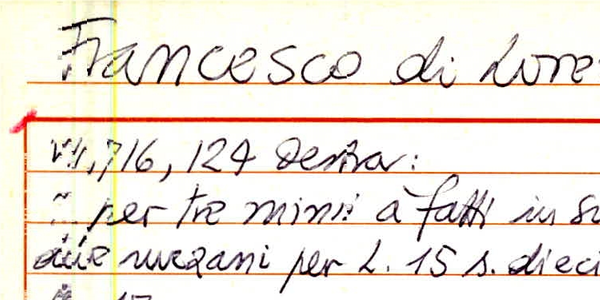 Francesco di Lore
VII,716, 124 destra:
per tre minii à fatti in su
due mezzani per L. 15 s. dieci